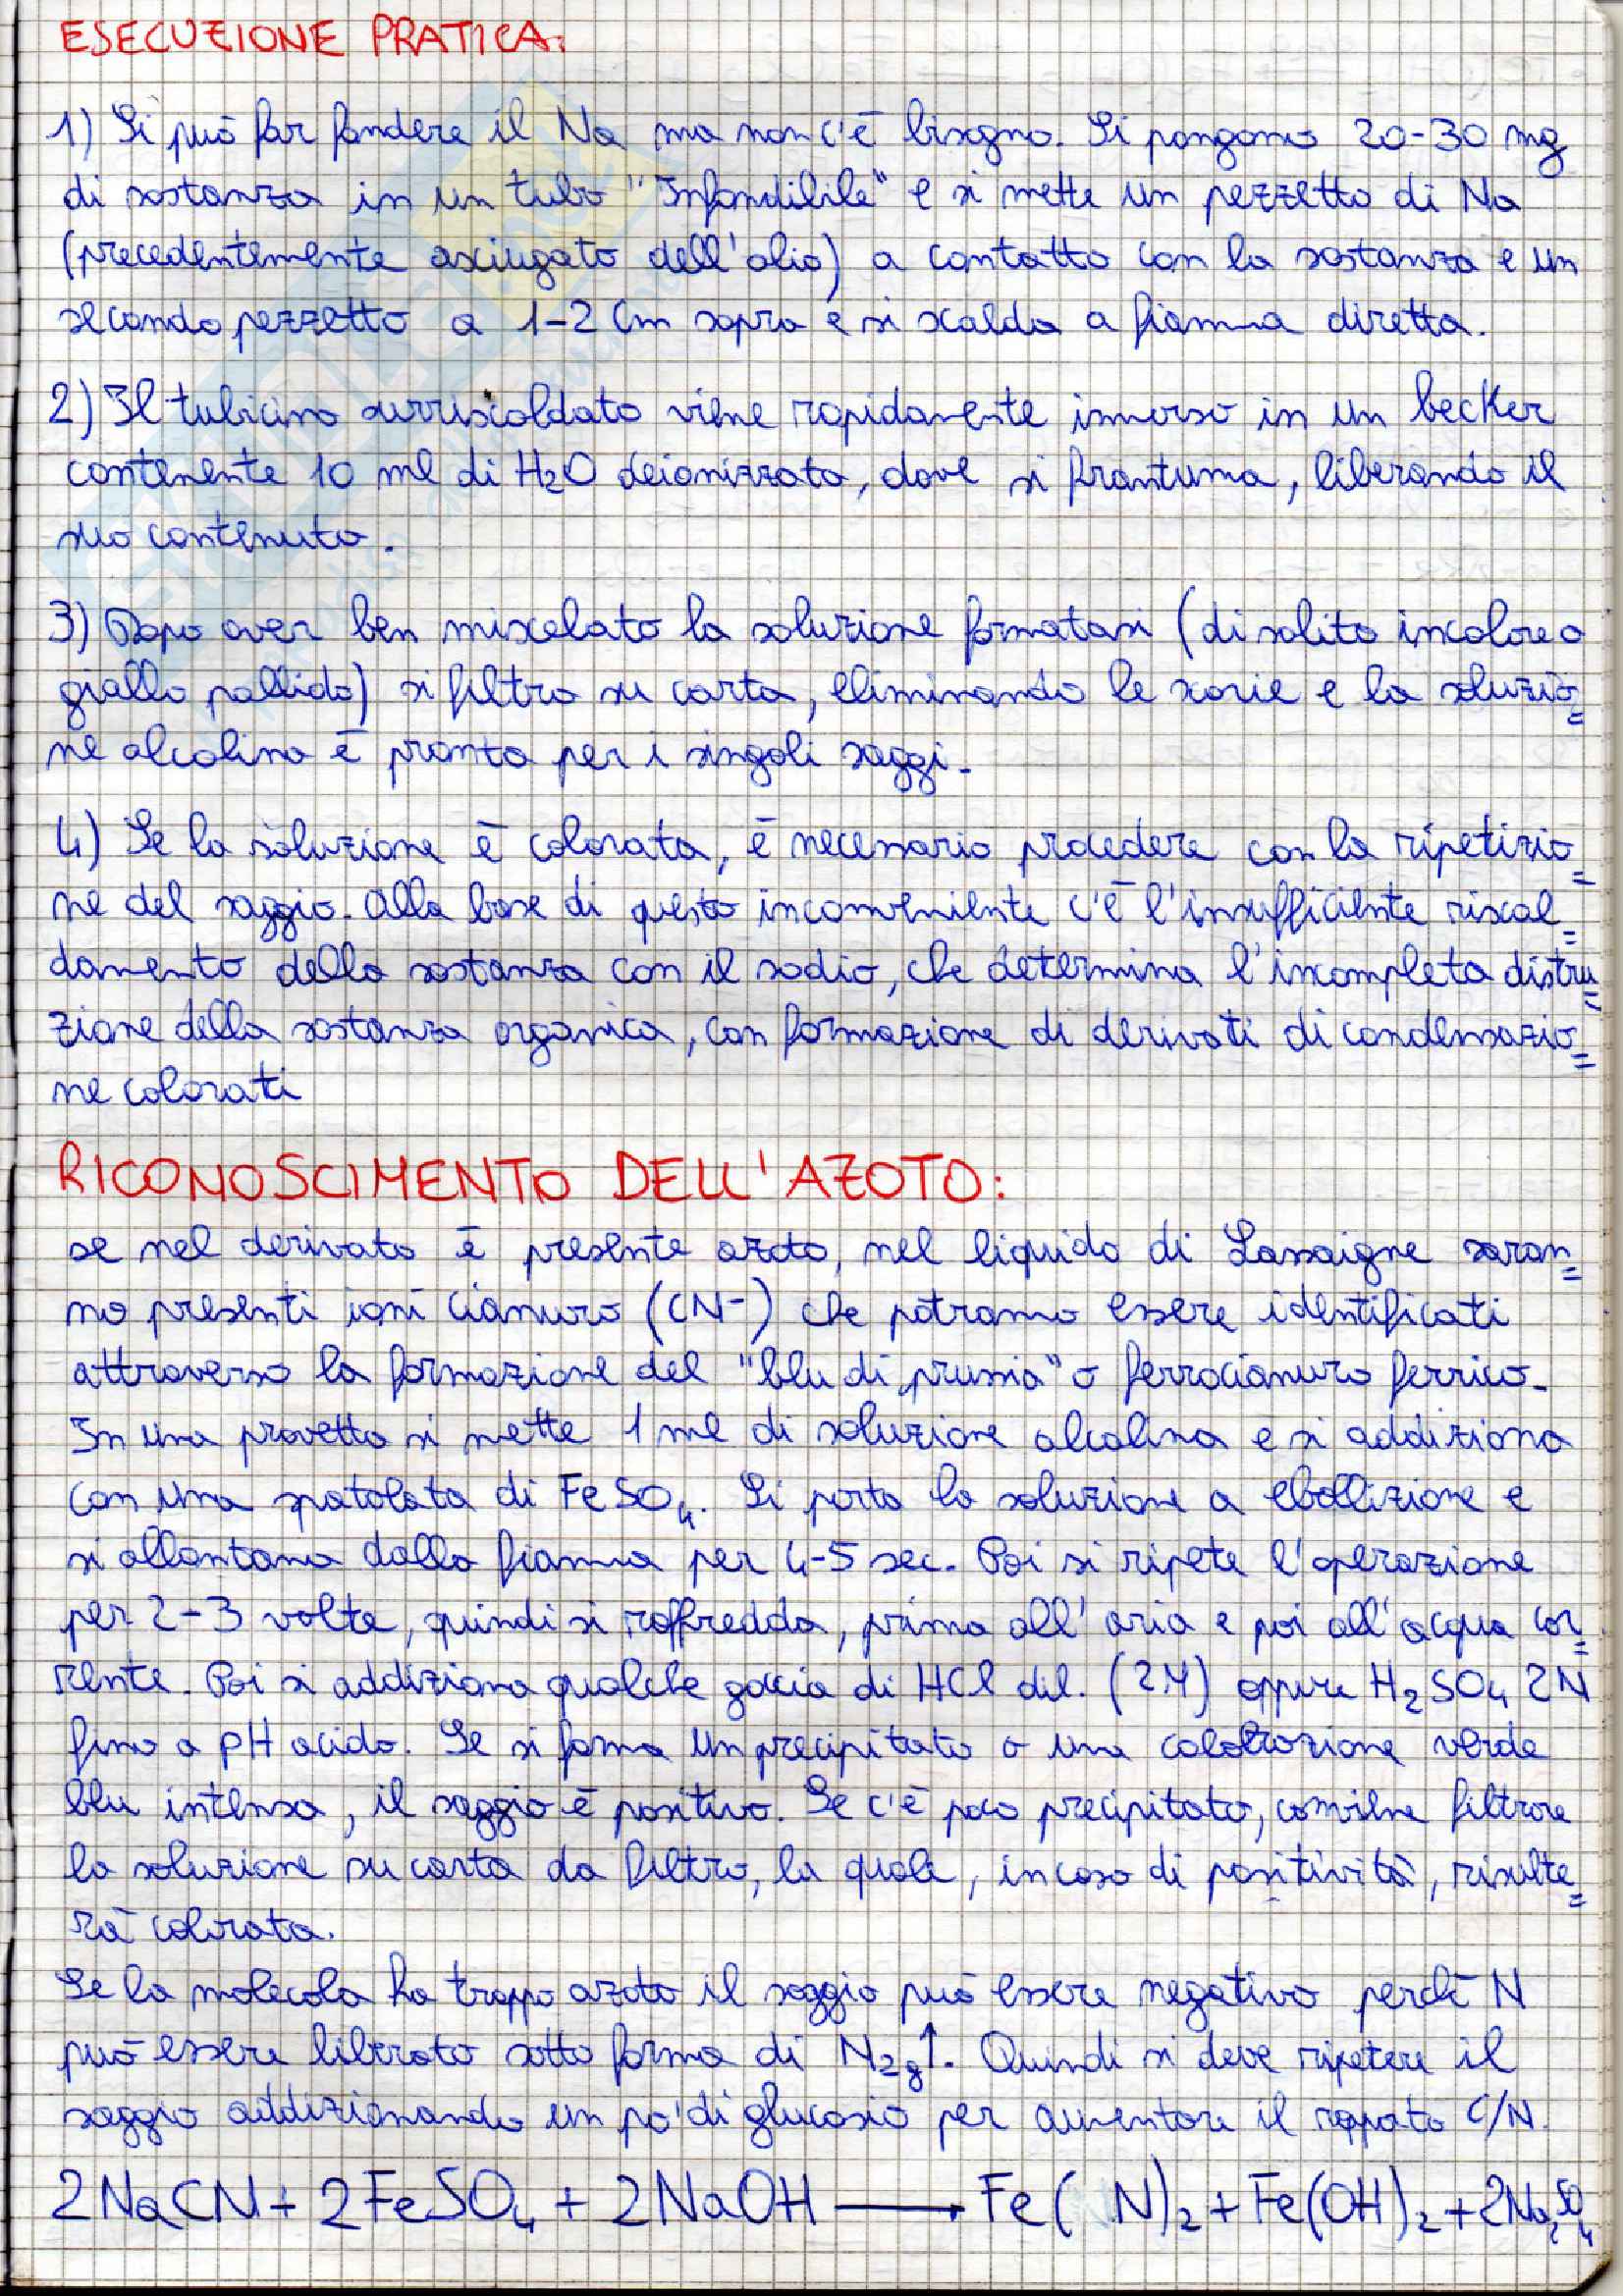 ESECUZIONE PRATICA:
1) Si può far fondere il Na ma non c'è bisogno. Si pongono 20-30 mg
di sostanza in un tubo "Infondibile" e si mette un pezzetto di Na
(precedentemente asciugato dell'olio) a contatto con la sostanza e un
secondo pezzetto a 1-2 cm sopra e si scalda a fiamma diretta.
2) Il tubicino surriscaldato viene rapidamente immerso in un becker
contenente 10 ml di H₂O deionizzata, dove si frantuma, liberando il
suo contenuto.
3) Dopo aver ben miscelato la soluzione formatasi (di solito incolore o
giallo pallido) si filtra su carta, eliminando le scorie e la soluzio=
ne alcalina è pronta per i singoli saggi.
4) Se la soluzione è colorata, è necessario procedere con la ripetizio=
ne del saggio. Alla base di questo inconveniente c'è l'insufficiente riscal=
damento della sostanza con il sodio, che determina l'incompleta distru=
zione della sostanza organica, con formazione di derivati di condensazio=
ne colorati
RICONOSCIMENTO DELL'AZOTO:
se nel derivato è presente azoto, nel liquido di Lassaigne saran=
no presenti ioni cianuro (CN⁻) che potranno essere identificati
attraverso la formazione del "blu di prussia" o ferrocianuro ferrico.
In una provetta si mette 1 ml di soluzione alcalina e si addiziona
con una spatolata di FeSO₄. Si porta la soluzione a ebollizione e
si allontana dalla fiamma per 4-5 sec. Poi si ripete l'operazione
per 2-3 volte, quindi si raffredda, prima all'aria e poi all'acqua cor=
rente. Poi si addiziona qualche goccia di HCl dil. (2M) oppure H₂SO₄ 2N
fino a pH acido. Se si forma un precipitato o una colorazione verde
blu intensa, il saggio è positivo. Se c'è poco precipitato, conviene filtrare
la soluzione su carta da filtro, la quale, in caso di positività, risulte=
rà colorata.
Se la molecola ha troppo azoto il saggio può essere negativo perché N
può essere liberato sotto forma di N₂g↑. Quindi si deve ripetere il
saggio addizionando un po' di glucosio per aumentare il rapporto C/N.
2NaCN + 2FeSO₄ + 2NaOH ⟶ Fe( N)₂ + Fe(OH)₂ + 2Na₂SO₄